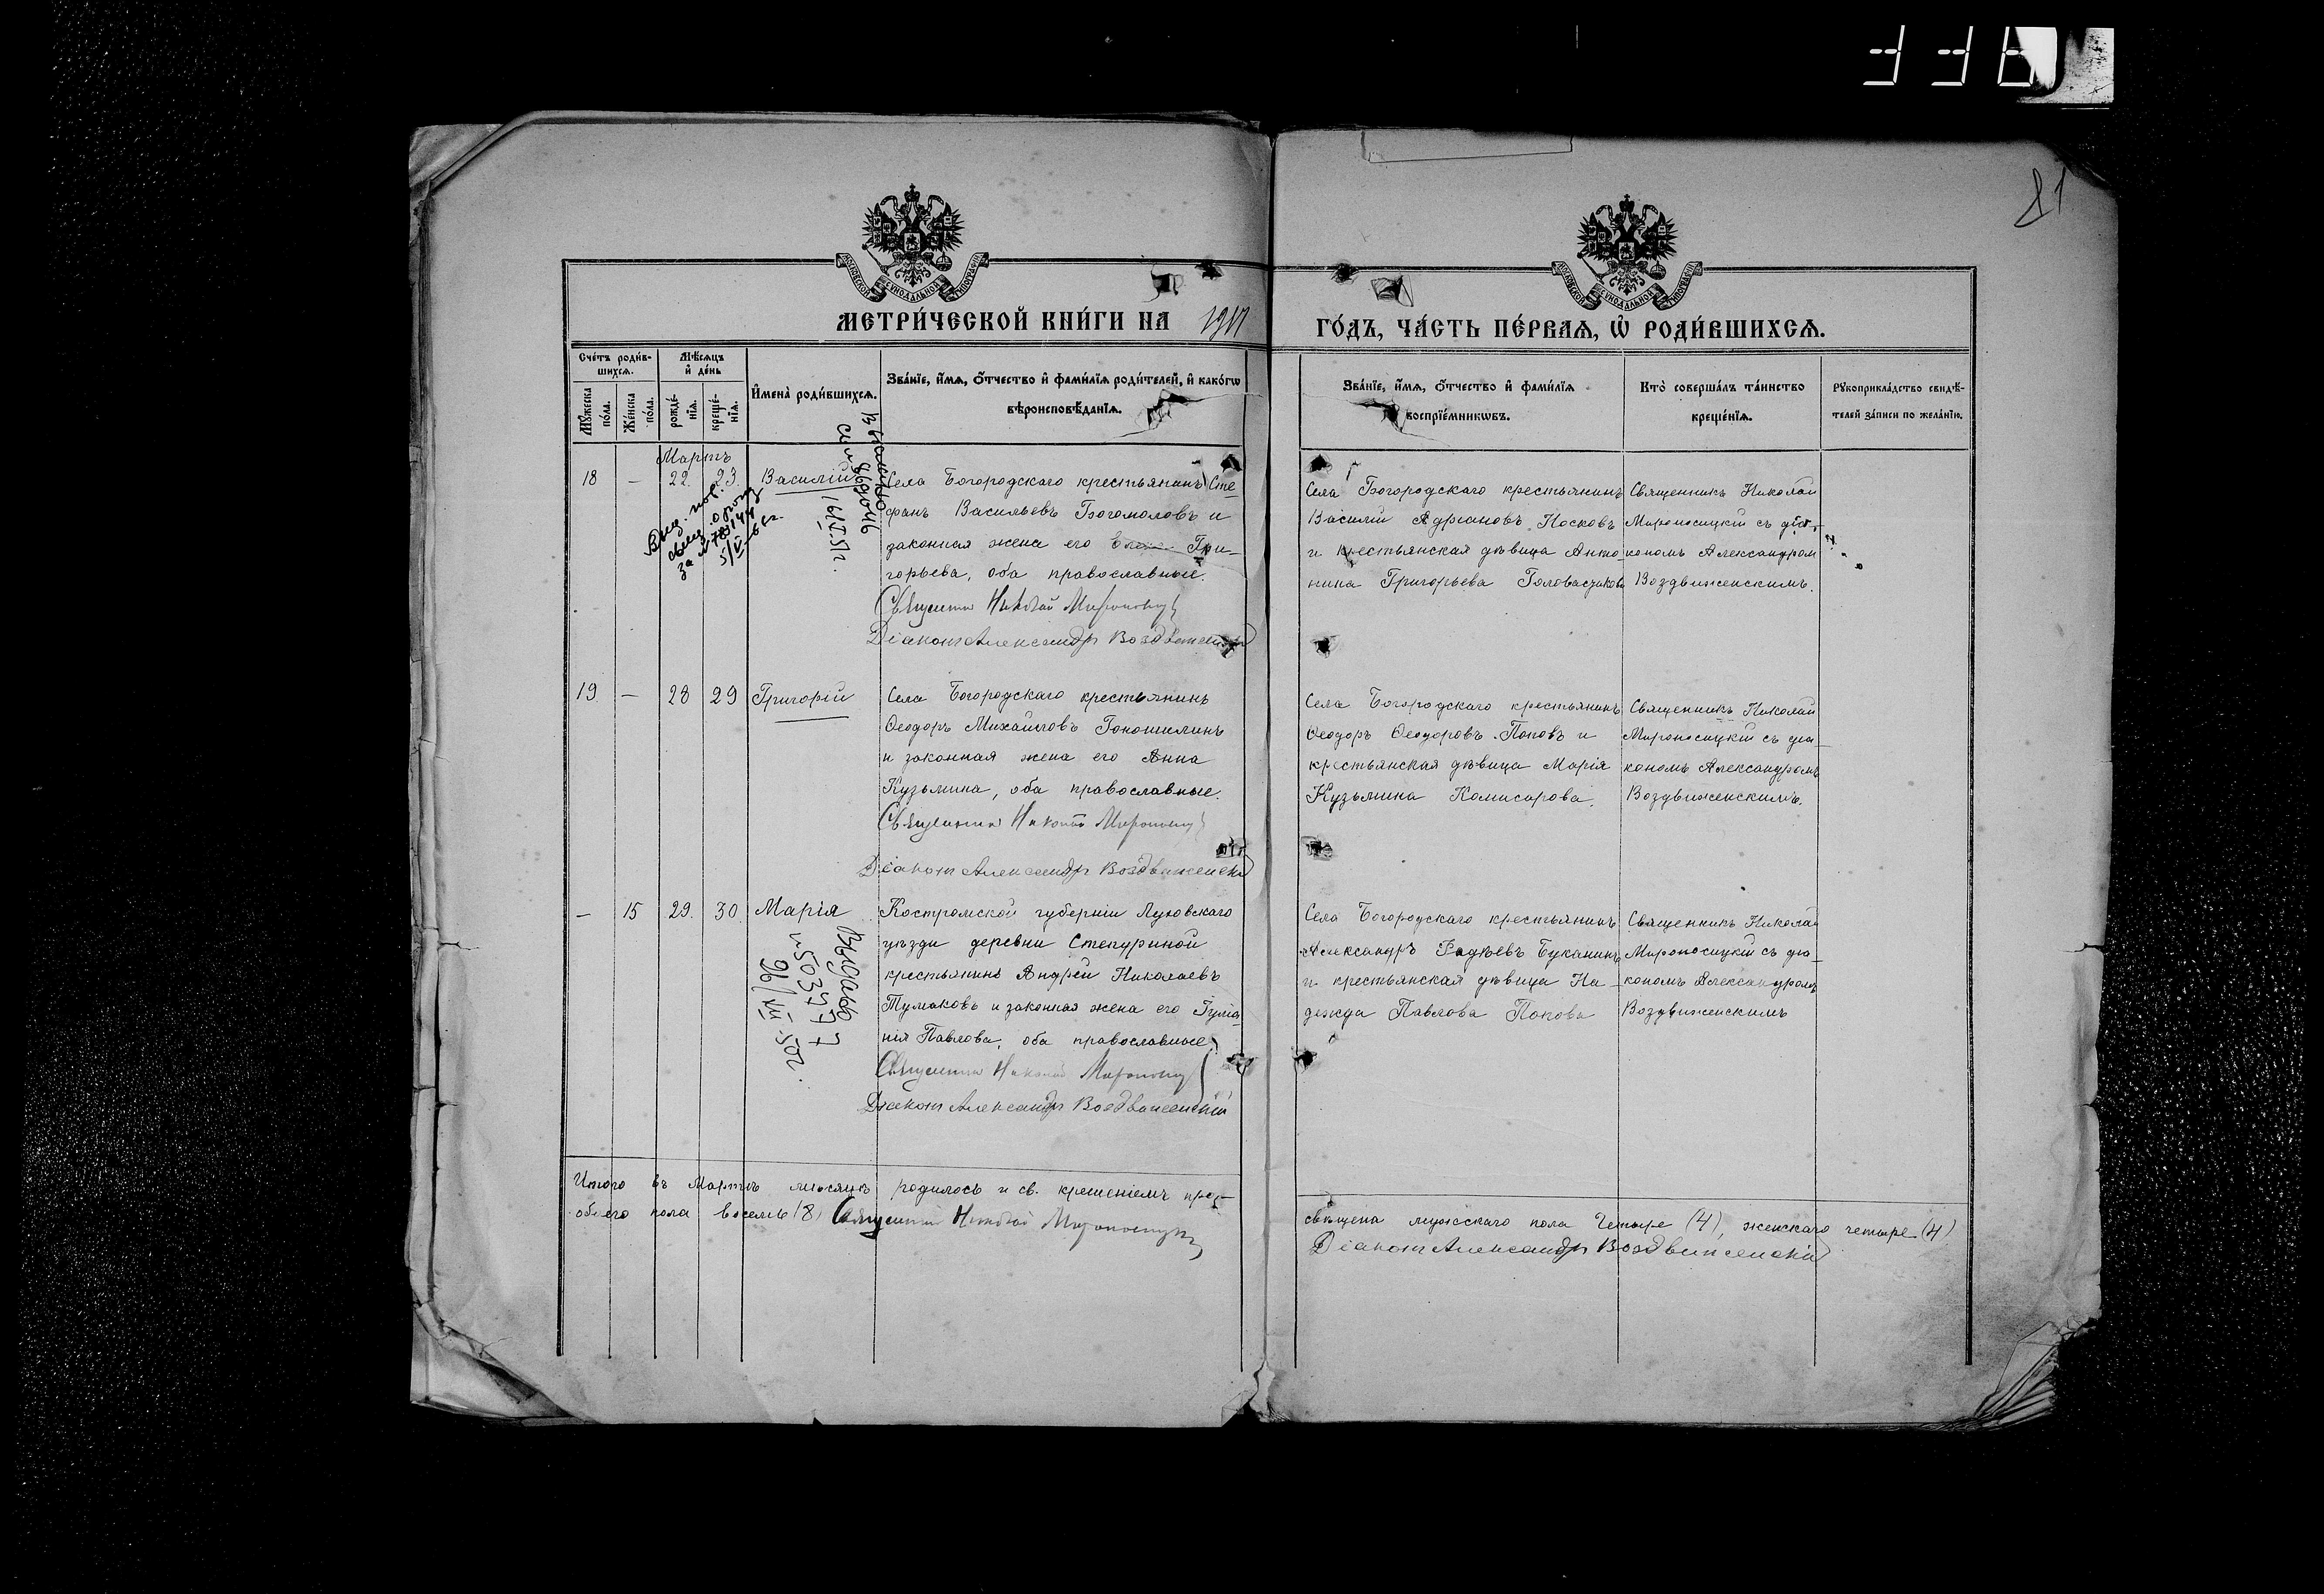 81
МОСКОВСКОЙ СѴНОДАЛЬНОЙ ТИПОГРАФІИ
МОСКОВСКОЙ СѴНОДАЛЬНОЙ ТИПОГРАФІИ
МЕТРИ́ЧЕСКОЙ КНИ́ГИ НА
ГО́ДЪ, ЧА́СТЬ ПЕ́РВАЯ, Ѡ РОДИ́ВШИХСЯ.
Счетъ родив-
шихся.
Мѣсяцъ
и день
Мужеска
пола.
Женска
пола.
рожде-
нія.
креще-
нія.
Имена родившихся.
Званіе, имя, отчество и фамилія родителей, и какогѡ
вѣроисповѣданія.
Званіе, имя, отчество и фамилія
воспріемникѡвъ.
Кто совершалъ таинство
крещенія.
Рукоприкладство свидѣ-
телей записи по желанію.
Мартъ
18
—
22.
23.
Василій
16/I.51г.
5/V-66г.
Села Богородскаго крестьянинъ Сте-
фанъ Васильевъ Богомоловъ и
законная жена его Гри-
горьева, оба православные.
Священникъ Николай
Діаконъ Александръ Воздвиженскій
Села Богородскаго крестьянинъ
Василій Адріановъ Носковъ
и крестьянская дѣвица Анто-
нина Григорьева
Священникъ Николай
Мироносицкій съ діа-
кономъ Александром
Воздвиженскимъ.
19
—
28
29
Григорій
Села Богородскаго крестьянинъ
Ѳеодоръ Михайловъ
и законная жена его Анна
Кузьмина, оба православные.
Священникъ Николай
Діаконъ Александръ Воздвиженскій
Села Богородскаго крестьянинъ
Ѳеодоръ Ѳеодоровъ Поповъ и
крестьянская дѣвица Марія
Кузьмина Комисарова.
Священникъ Николай
Мироносицкій съ діа-
кономъ Александромъ
Воздвиженскимъ.
—
15
29.
30.
Марія
Выдано
№503777
26/XII-50г.
Костромской губерніи Луховскаго
уѣзда деревни Степуриной
крестьянинъ Андрей Николаевъ
Тумаковъ и законная жена его
Павлова, оба православные.
Священникъ Николай
Діаконъ Александръ Воздвиженскій
Села Богородскаго крестьянинъ
Александръ Фадѣевъ Буканинъ
и крестьянская дѣвица На-
дежда Павлова Попова
Священникъ Николай
Мироносицкій съ діа-
кономъ Александромъ
Воздвиженскимъ
Итого въ Мартѣ мѣсяцѣ родилось и св. крещеніемъ прос-
обоего пола восемь (8) Священникъ Николай
свѣщена мужскаго пола четыре (4), женскаго четыре (4)
Діаконъ Александръ Воздвиженскій